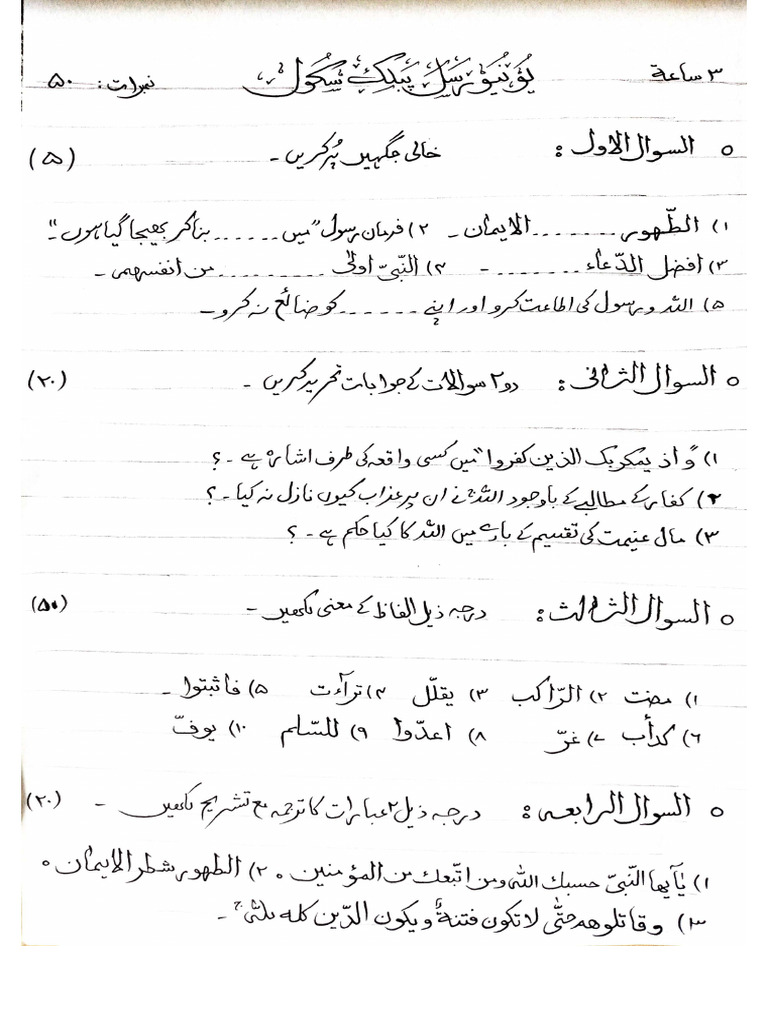 ۳ ساعة یُونیورسل پبلک سکول نمبرات: ۵۰
o السوال الاول: خالی جگہیں پُر کریں۔ (۵)
۱) الطّھور ........ الایمان۔ ۲) فرمان رسول "میں ...... بنا کر بھیجا گیا ہوں۔"
۳) افضل الدّعاء ........۔ ۴) النّبیّ اولیٰ ......... من انفسھم۔
۵) اللہ و رسول کی اطاعت کرو اور اپنے ...... کو ضائع نہ کرو۔
o السوال الثانی: دو ۲ سوالات کے جوابات تحریر کریں۔ (۲۰)
۱) "و اذ یمکر بک الذین کفروا" میں کسی واقعہ کی طرف اشارہ ہے۔؟
۲) کفار کے مطالبے کے باوجود اللہ نے ان پر عذاب کیوں نازل نہ کیا۔؟
۳) مال غنیمت کی تقسیم کے بارے میں اللہ کا کیا حکم ہے۔؟
o السوال الثالث: درجہ ذیل الفاظ کے معنی لکھیں۔
۱) مضت ۲) الرّاکب ۳) یقلّل ۴) ترآءت ۵) فاثبتوا۔
۶) کدأب ۷) غرّ ۸) اعدّوا ۹) للسّلم ۱۰) یوفّ
o السوال الرابعہ: درجہ ذیل ۲ عبارات کا ترجمہ مع تشریح لکھیں۔ (۲۰)
۱) یٰآیھا النّبیّ حسبک اللہ ومن اتّبعک من المؤمنین ۰ ۲) الطھور شطر الایمان ۰
۳) وقاتلوھم حتّٰی لا تکون فتنةٌ و یکون الدّین کله للّٰہ۔